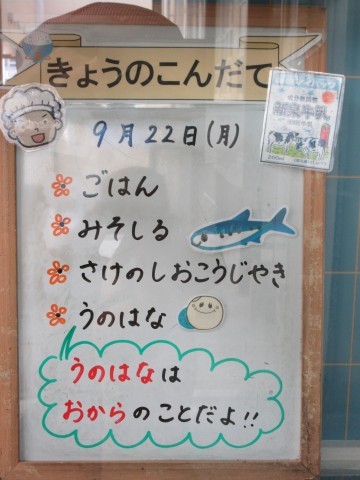 きょうのこんだて
9月22日(月)
ごはん
みそしる
さけのしおこうじやき
うのはな
うのはなは
おからのことだよ!!